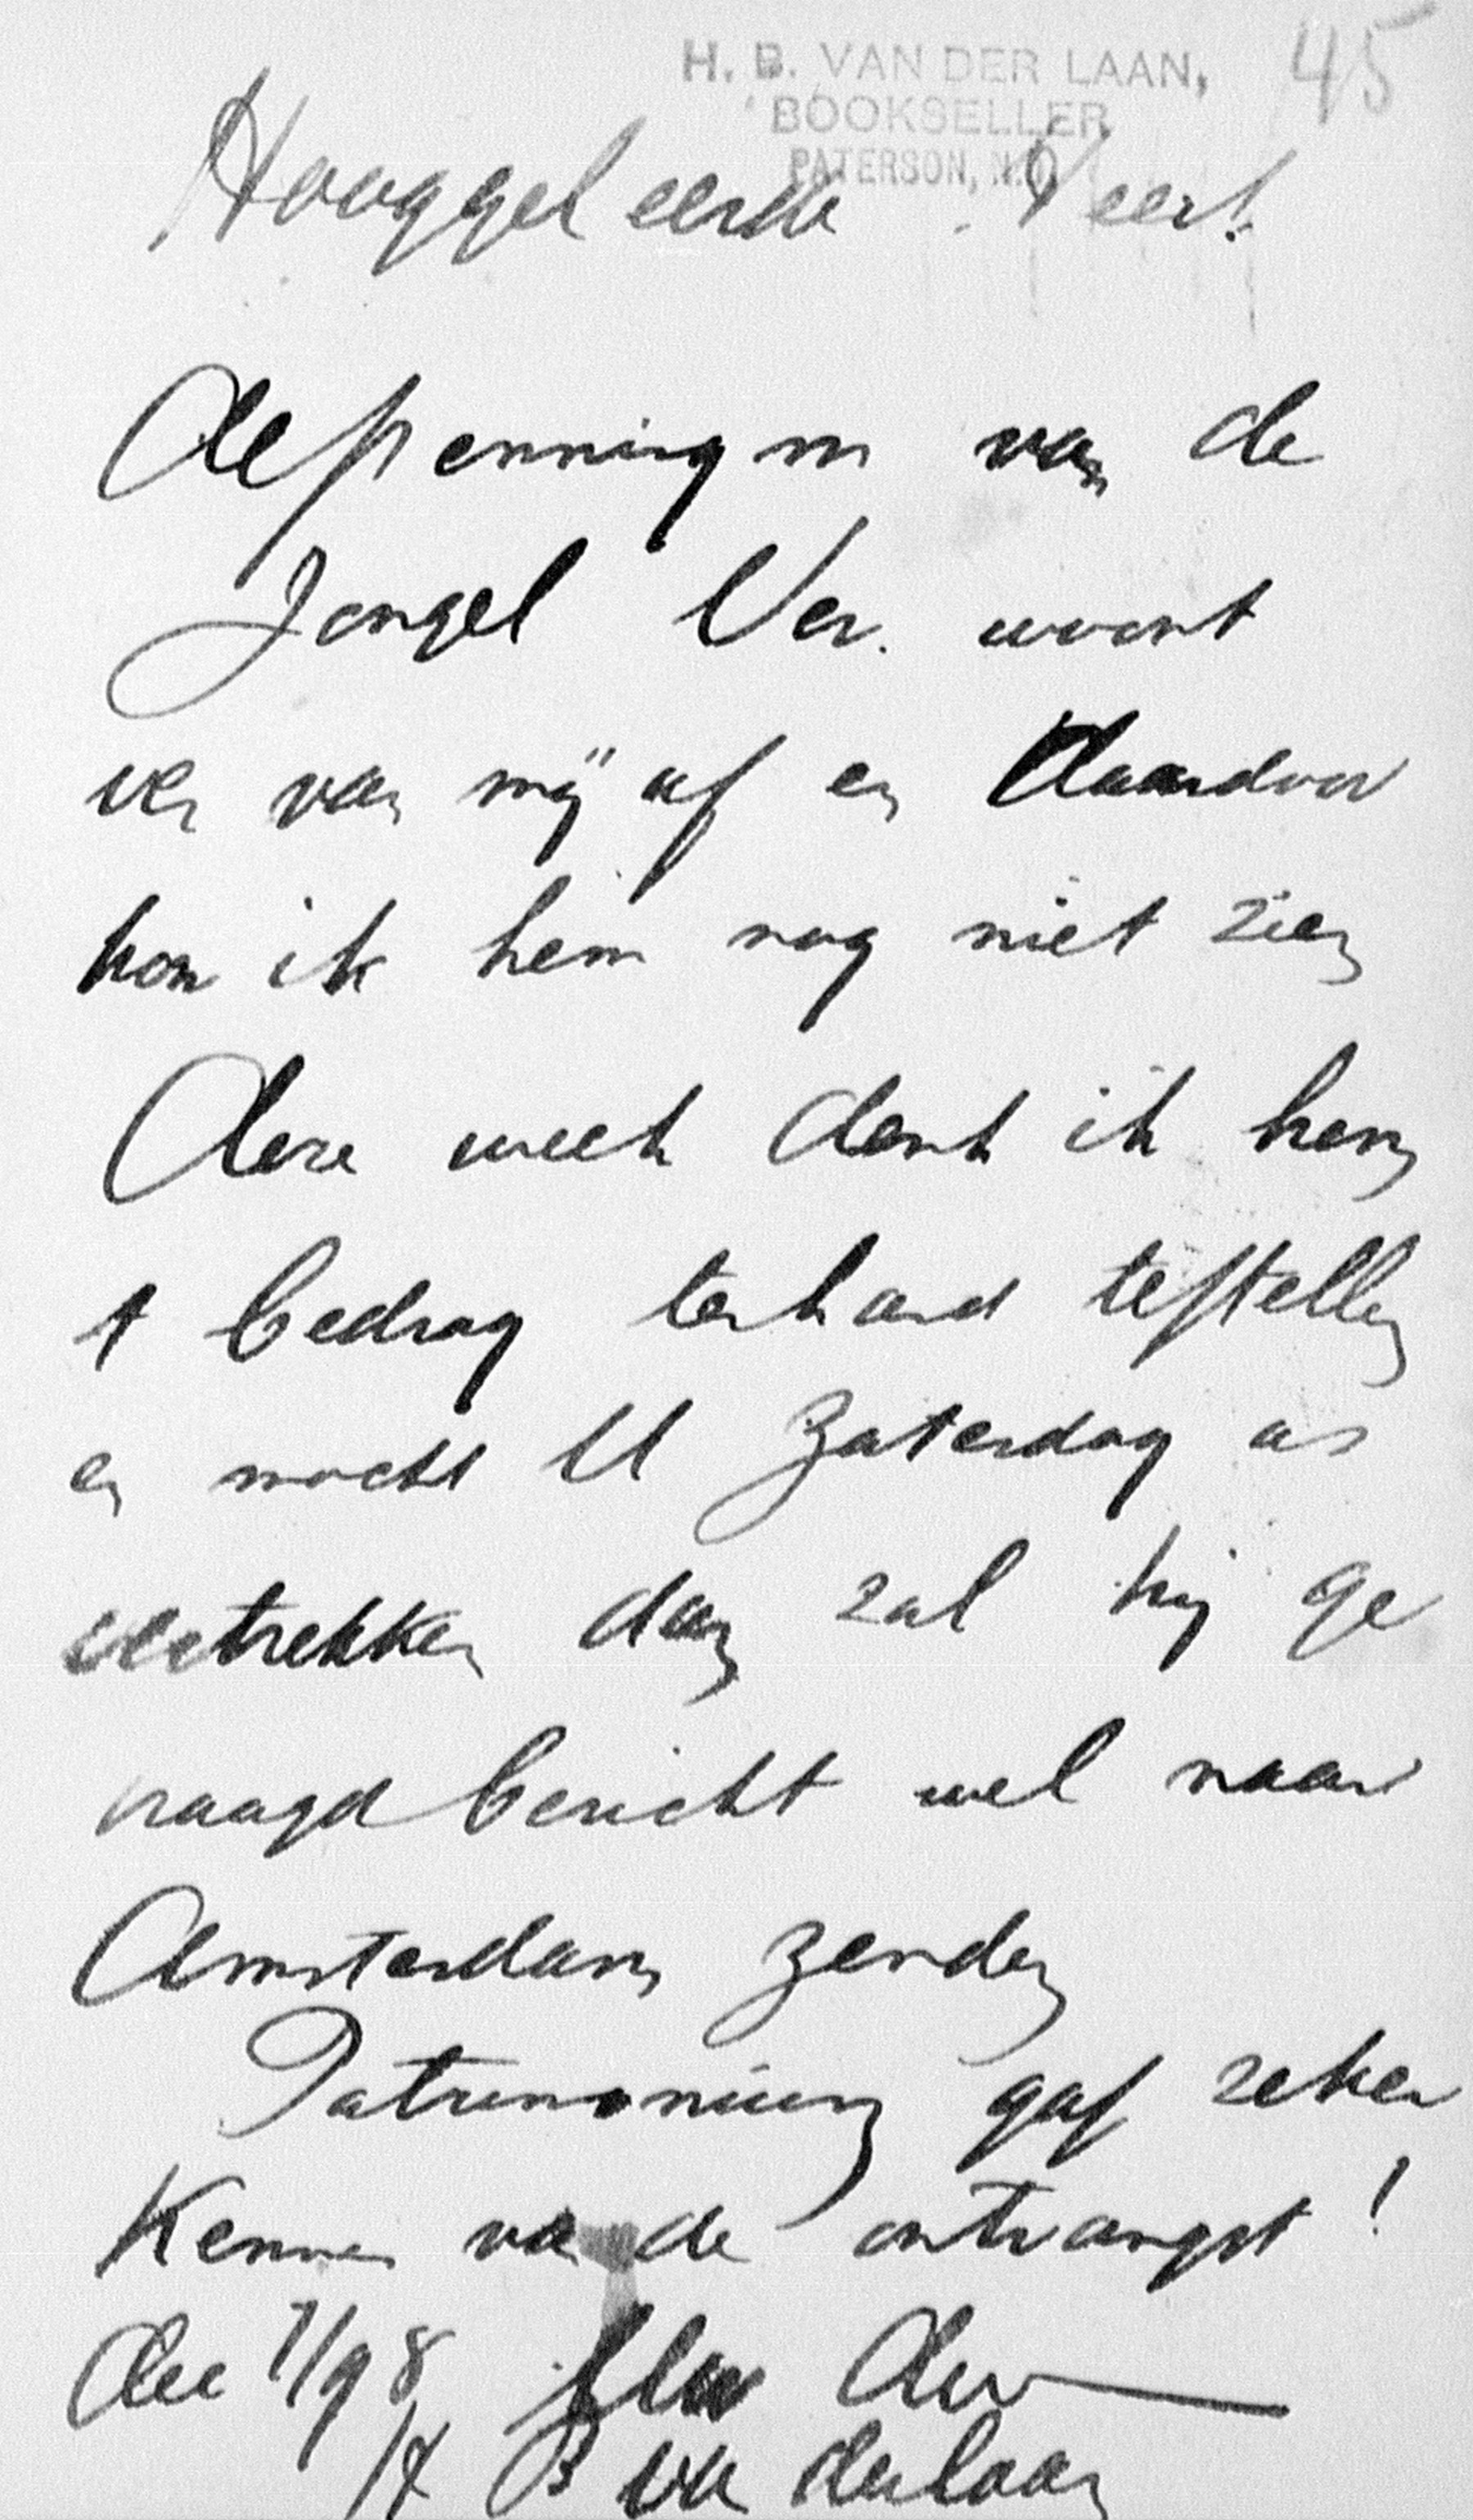 H. B. VAN DER LAAN, 45
BOOKSELLER
PATERSON, N.J.
Hooggeleerde Heer!
De penningm van de
Jongel Ver. woont
ver van mij af en daardoor
kon ik hem nog niet zien
Deze week denk ik hem
t bedrag ter hand te stellen
en mocht U Zaterdag as
vertrekken dan zal hij ge
vraagd bericht wel naar
Amsterdam zenden
Patrimonium gaf zeker
Kennis van de ontvangst!
Dec 7/98 Uw Dw
H B van der Laan